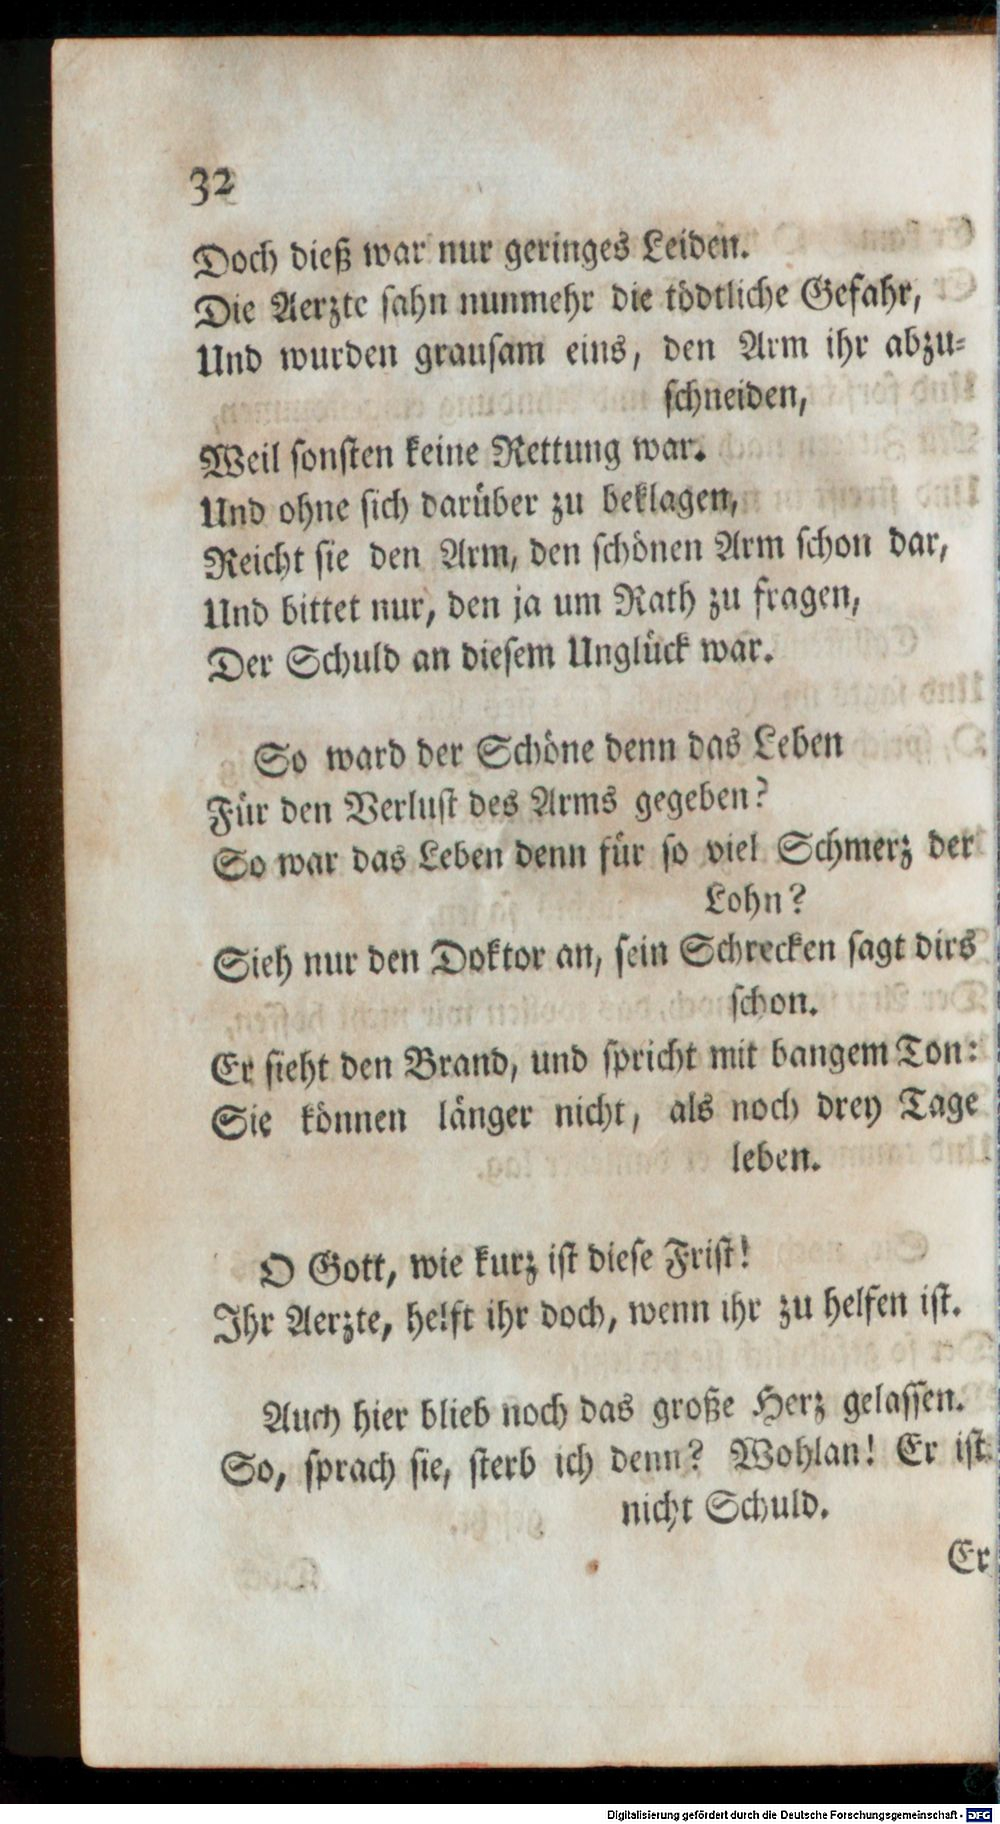 32
Doch dieß war nur geringes Leiden.
Die Aerzte sahn nunmehr die tödtliche Gefahr,
Und wurden grausam eins, den Arm ihr abzu-
schneiden,
Weil sonsten keine Rettung war.
Und ohne sich darüber zu beklagen,
Reicht sie den Arm, den schönen Arm schon dar,
Und bittet nur, den ja um Rath zu fragen,
Der Schuld an diesem Unglück war.
So ward der Schöne denn das Leben
Für den Verlust des Arms gegeben?
So war das Leben denn für so viel Schmerz der
Lohn?
Sieh nur den Doktor an, sein Schrecken sagt dirs
schon.
Er sieht den Brand, und spricht mit bangem Ton:
Sie können länger nicht, als noch drey Tage
leben.
O Gott, wie kurz ist diese Frist!
Ihr Aerzte, helft ihr doch, wenn ihr zu helfen ist.
Auch hier blieb noch das große Herz gelassen.
So, sprach sie, sterb ich denn? Wohlan! Er ist
nicht Schuld.
Er
Digitalisierung gefördert durch die Deutsche Forschungsgemeinschaft - DFG